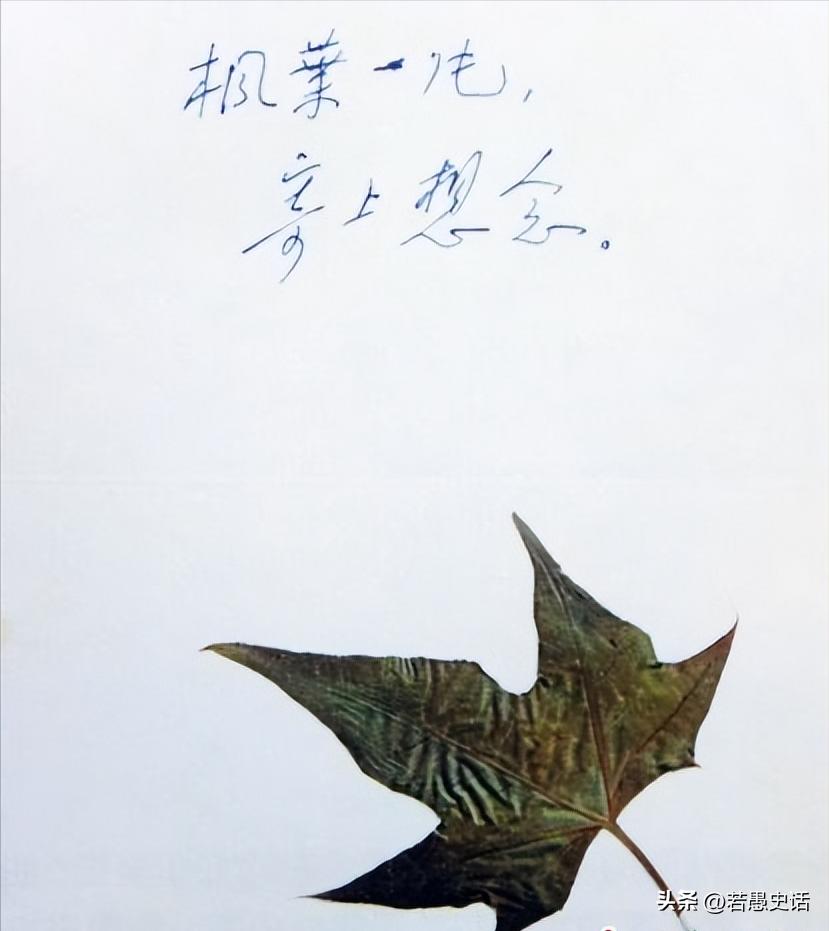 枫葉一
寄上想念。
头条 @若愚史话